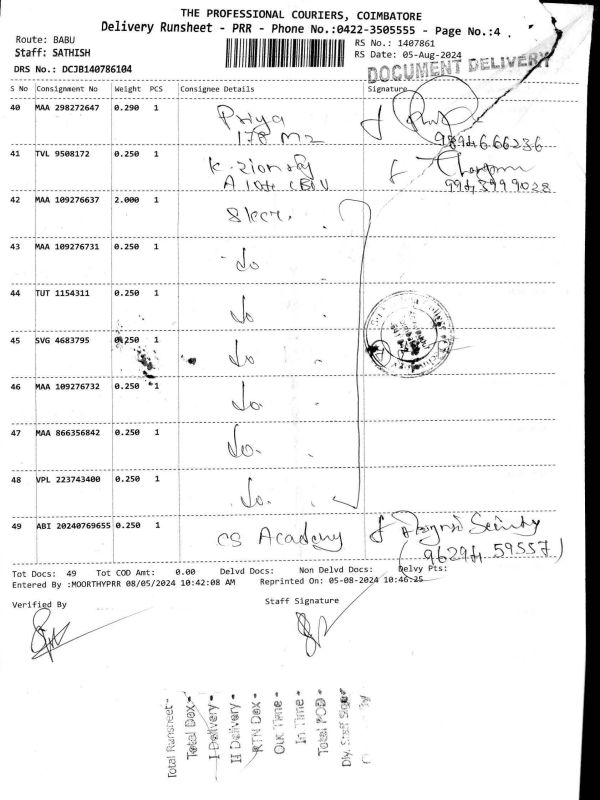 THE PROFESSIONAL COURIERS, COIMBATORE
Delivery Runsheet - PRR - Phone No.:0422-3505555 - Page No.:4
Route: BABU
Staff: SATHISH
RS No.: 1407861
RS Date: 05-Aug-2024
DRS No.: DCJB140786104
DOCUMENT DELIVERY
S No Consignment No Weight PCS Consignee Details Signature
40 MAA 298272647 0.290 1 Priya
178 M2
9894666236
41 TVL 9508172 0.250 1
9943999028
42 MAA 109276637 2.000 1
43 MAA 109276731 0.250 1 do
44 TUT 1154311 0.250 1 do
45 SVG 4683795 0.250 1 do
46 MAA 109276732 0.250 1 do
47 MAA 866356842 0.250 1 do.
48 VPL 223743400 0.250 1 do.
49 ABI 20240769655 0.250 1 CS Academy
Tot Docs: 49 Tot COD Amt: 0.00 Delvd Docs: Non Delvd Docs: Delvy Pts:
Entered By :MOORTHYPRR 08/05/2024 10:42:08 AM Reprinted On: 05-08-2024 10:46:25
Verified By
Staff Signature
Total Runsheet -
Total Dox -
I Delivery -
II Delivery -
RTN Dox -
Out Time -
In Time -
Total POD -